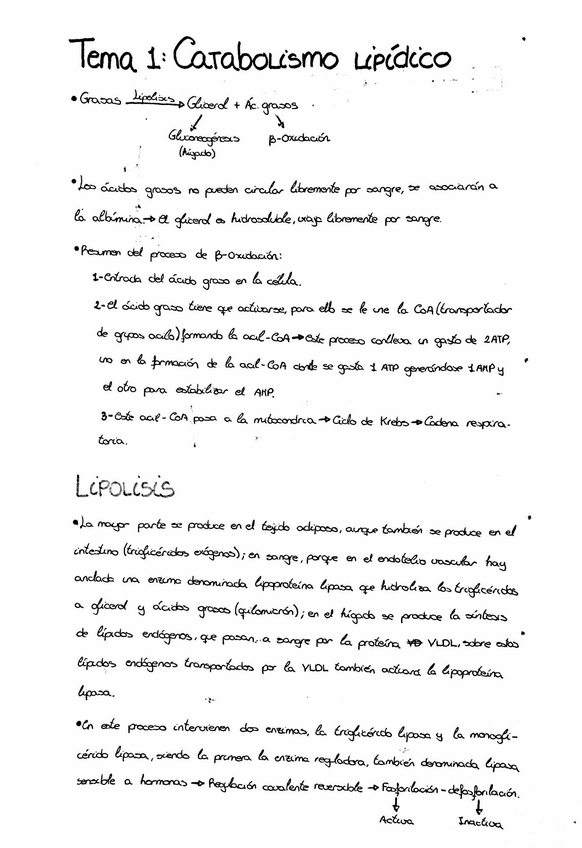 Tema 1: Catabolismo lipídico
• Grasas Lipolisis → Glicerol + Ác. grasos
Gluconeogénesis β-Oxidación
(hígado)
• Los ácidos grasos no pueden circular libremente por sangre, se asociarán a
la albúmina → El glicerol es hidrosoluble, viaja libremente por sangre.
• Resumen del proceso de β-Oxidación:
1-Entrada del ácido graso en la célula.
2-El ácido graso tiene que activarse, para ello se le une la CoA (transportador
de grupos acilo) formando la acil-CoA → Este proceso conlleva un gasto de 2ATP,
uno en la formación de la acil-CoA donde se gasta 1 ATP generándose 1AMP y
el otro para estabilizar el AMP.
3-Este acil-CoA pasa a la mitocondria → Ciclo de Krebs → Cadena respira-
toria.
Lipolisis
• La mayor parte se produce en el tejido adiposo, aunque también se produce en el
intestino (triglicéridos exógenos); en sangre, porque en el endotelio vascular hay
anclada una enzima denominada lipoproteína lipasa que hidroliza los triglicéridos
a glicerol y ácidos grasos (quilomicrón); en el hígado se produce la síntesis
de lípidos endógenos, que pasan a sangre por la proteína VLDL, sobre estos
lípidos endógenos transportados por la VLDL también actuará la lipoproteína
lipasa.
• En este proceso intervienen dos enzimas, la triglicérido lipasa y la monogli-
cérido lipasa, siendo la primera la enzima reguladora, también denominada lipasa
sensible a hormonas → Regulación covalente reversible → Fosforilación - defosforilación.
Activa Inactiva